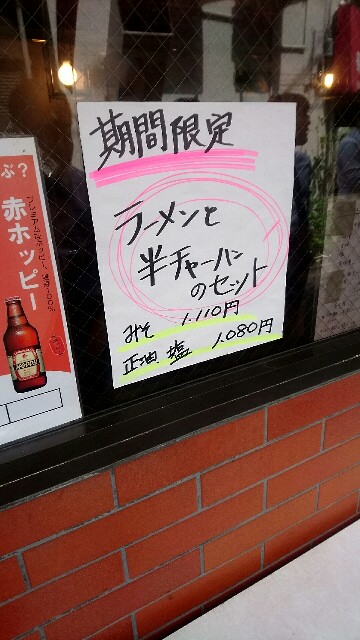 期間限定
ラーメンと
半チャーハン
のセット
みそ 1.110円
正油 塩 1.080円
ぶ?
赤ホッピー